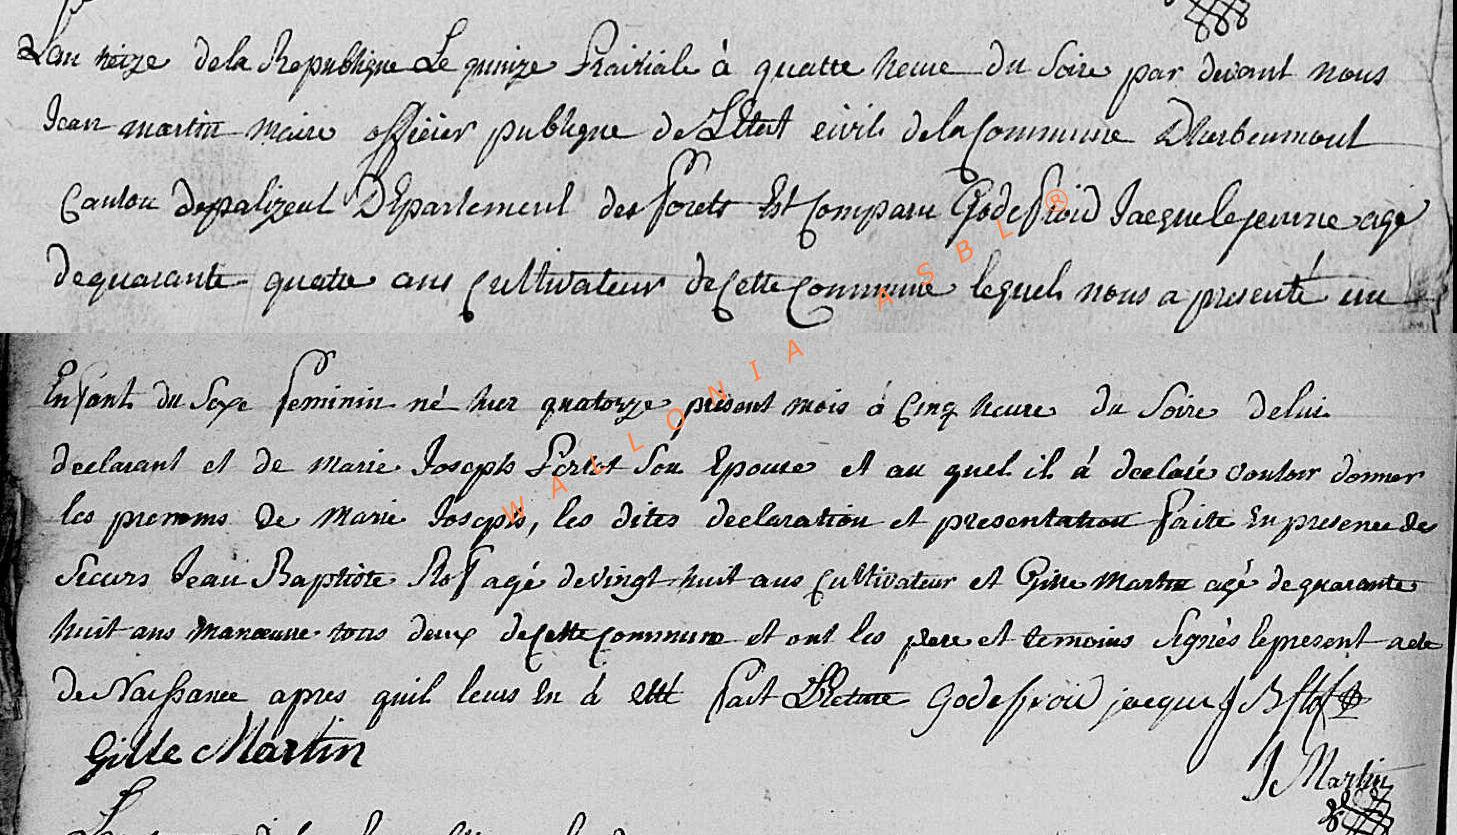 Lan treize dela Republique Le quinze Prairiale à quatte heure du Soire par devant nous
Jean martin maire officier publique de LEtat civil dela Commune Dherbeumont
Canton depalizeul DEpartement des forets Est Comparu Godefroid Jacque lejeunne agé
dequarante quatre ans Cultivateur deCette Commune lequel nous a presenté un
Enfant du Sexe feminin né hier quatorze présent mois à Cinq heure du Soire delui
declarant et de Marie Joseph Son Epouse et au quel il à declaré vouloir donner
les prenoms de Marie Joseph, les dites declaration et presentation faite En presence des
Sieurs Jean Baptiste Stof agé devingt huit ans Cultivateur et Gille Martin agé dequarante
huit ans manoeuvre tous deux deCette Commune et ont les pere et temoins Signés lepresent acte
de Naissance apres quil leurs En à etté fait Lecture Godefroid jacque J B Stof
Gille Martin
J Martin
WALLONIA ASBL ®